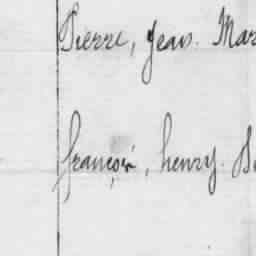 Pierre, Jean. Mar
françois, henry. D